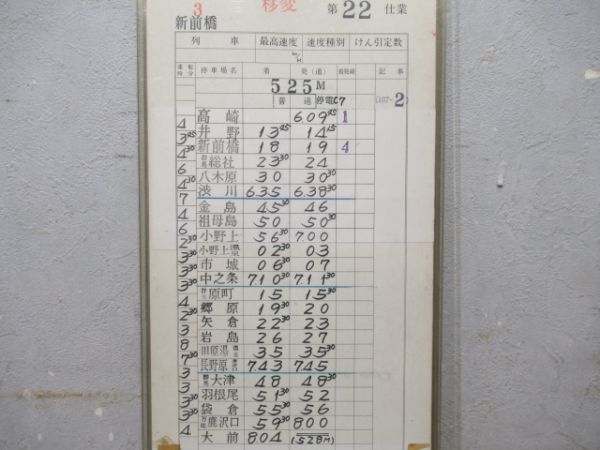 3 移変 第22仕業
新前橋
列車 最高速度 速度種別 けん引定数
km/H
運転時分 停車場名 着 発(通) 着発線 記事
525M
普通 停電C7 (107-2)
高崎 6.09 45 1
4
井野 13 45 14 15
3 45
新前橋 18 19 4
4 30
群馬総社 23 30 24
6
八木原 30 30 30
4 30
渋川 6.35 6.38 30
7
金島 45 30 46
4
祖母島 50 50 30
6
小野上 56 30 7.00
2 30
小野上温泉 02 30 03
3 30
市城 06 30 07
3 30
中之条 7.10 30 7.11 30
3 30
群馬原町 15 15 30
4
郷原 19 30 20
2 30
矢倉 22 30 23
3
岩島 26 27
8
川原湯温泉 35 35 30
7 30
長野原 743 745
3
群馬大津 48 48 30
3
羽根尾 51 30 52
3 30
袋倉 55 30 56
3 30
万座鹿沢口 59 30 800
4
大前 804 (528M)